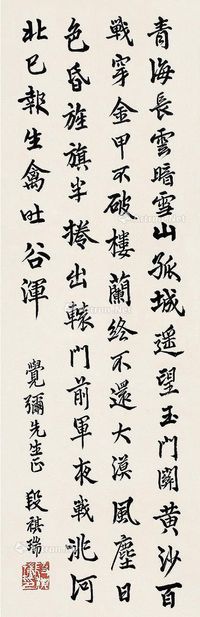 青海長雲暗雪山孤城遥望玉門關黄沙百
戰穿金甲不破樓蘭終不還大漠風塵日
色昏旌旗半捲出轅門前軍夜戰洮河
北已報生禽吐谷渾
覺彌先生正
段祺瑞